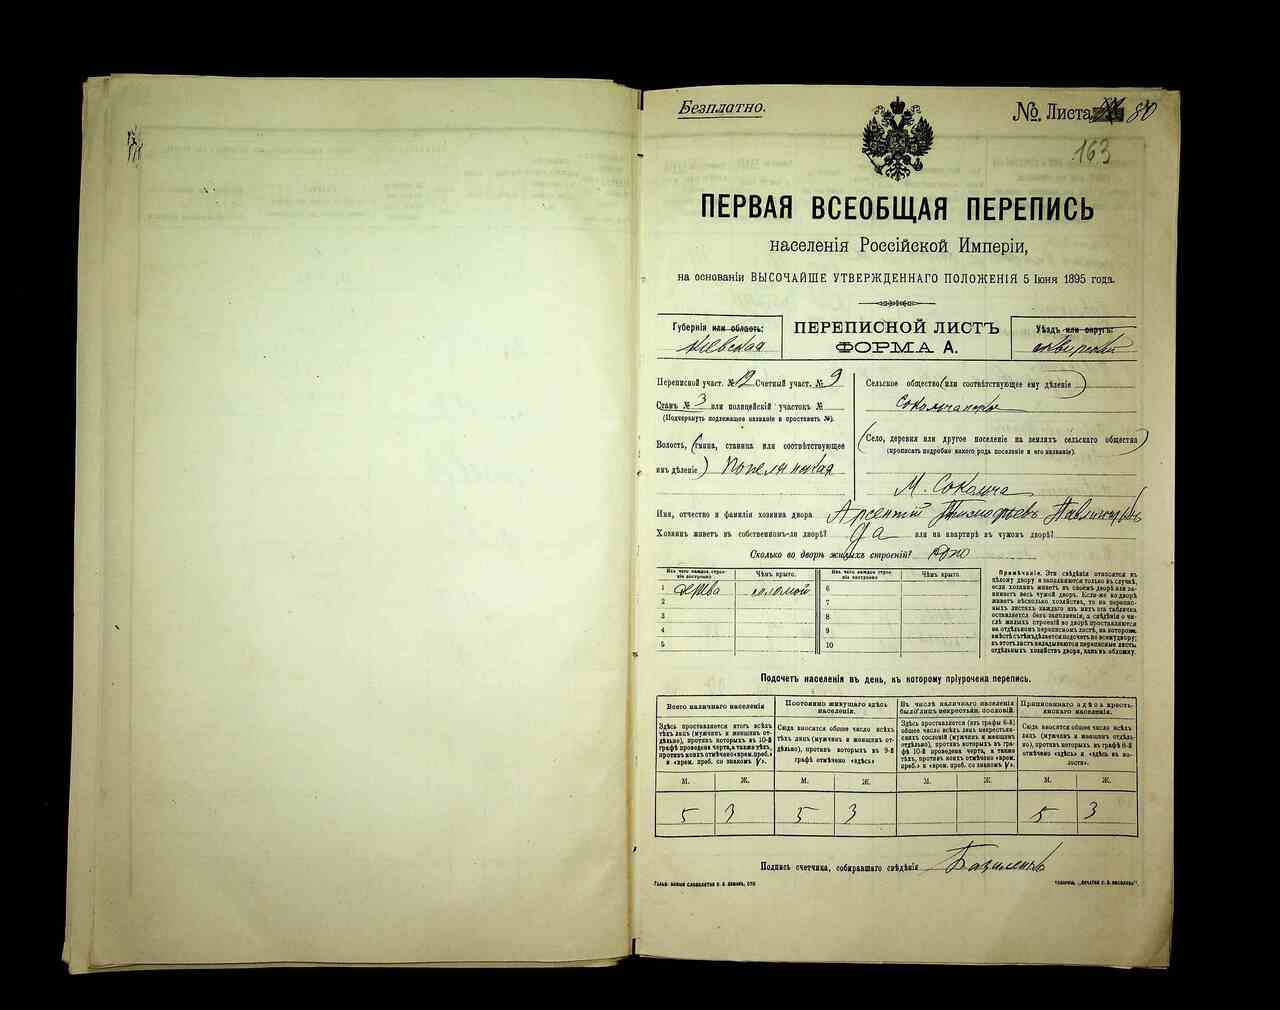 Безплатно.
№. Листа 80
163
ПЕРВАЯ ВСЕОБЩАЯ ПЕРЕПИСЬ
населенія Россійской Имперіи,
на основаніи ВЫСОЧАЙШЕ УТВЕРЖДЕННАГО ПОЛОЖЕНІЯ 5 Іюня 1895 года.
Губернія или область:
Кіевская
ПЕРЕПИСНОЙ ЛИСТЪ
ФОРМА А.
Уѣздъ или округъ:
Сквирскій
Переписной участ. № 12 Счетный участ. № 9
Станъ № 3 или полицейскій участокъ №
(Подчеркнуть подлежащее названіе и проставить №).
Волость, (гмина, станица или соотвѣтствующее
имъ дѣленіе)
Сельское общество (или соотвѣтствующее ему дѣленіе)
Село, деревня или другое поселеніе на земляхъ сельскаго общества
(прописать подробно какого рода поселеніе и его названіе).
М. Сокольча
Имя, отчество и фамилія хозяина двора Арсентій Тимофѣевъ
Хозяинъ живетъ въ собственномъ-ли дворѣ? Да или на квартирѣ въ чужомъ дворѣ?
Сколько во дворѣ жилыхъ строеній? одно
Изъ чего каждое строеніе построено
Чѣмъ крыто.
Изъ чего каждое строеніе построено
Чѣмъ крыто.
1 соломой 6
2 7
3 8
4 9
5 10
Примѣчаніе. Эти свѣдѣнія относятся къ
цѣлому двору и заполняются только въ случаѣ,
если хозяинъ живетъ въ своемъ дворѣ или занимаетъ
весь чужой дворъ. Если-же во дворѣ
живетъ нѣсколько хозяйствъ, то на переписныхъ
листахъ каждаго изъ нихъ эта табличка
оставляется безъ заполненія, а свѣдѣнія о числѣ
жилыхъ строеній во дворѣ проставляются
на отдѣльномъ переписномъ листѣ, на которомъ
вмѣстѣ съ тѣмъ дѣлается подсчетъ по всему двору;
въ этотъ листъ вкладываются переписные листы
отдѣльныхъ хозяйствъ двора, какъ въ обложку.
Подсчетъ населенія въ день, къ которому пріурочена перепись.
Всего наличнаго населенія
Здѣсь проставляется итогъ всѣхъ
тѣхъ лицъ (мужчинъ и женщинъ отдѣльно),
противъ которыхъ въ 10-й
графѣ проведена черта, а также тѣхъ,
противъ коихъ отмѣчено «врем. преб.»
и «врем. преб. со знакомъ V».
Постоянно живущаго здѣсь
населенія.
Сюда вносится общее число всѣхъ
тѣхъ лицъ (мужчинъ и женщинъ отдѣльно),
противъ которыхъ въ 9-й
графѣ отмѣчено «здѣсь»
Въ числѣ наличнаго населенія
было лицъ некрестьян. сословій.
Здѣсь проставляется (изъ графы 6-й)
общее число всѣхъ лицъ некрестьянскихъ
сословій (мужчинъ и женщинъ
отдѣльно), противъ которыхъ въ графѣ
10-й проведена черта, а также
тѣхъ, противъ коихъ отмѣчено «врем.
преб.» и «врем. преб. со знакомъ V».
Приписаннаго здѣсь крестьянскаго
населенія.
Сюда вносится общее число всѣхъ
лицъ (мужчинъ и женщинъ отдѣльно),
противъ которыхъ въ графѣ 8-й
отмѣчено «здѣсь» и «здѣсь въ волости».
М. Ж. М. Ж. М. Ж. М. Ж.
5 3 5 3 5 3
Подпись счетчика, собиравшаго свѣдѣнія